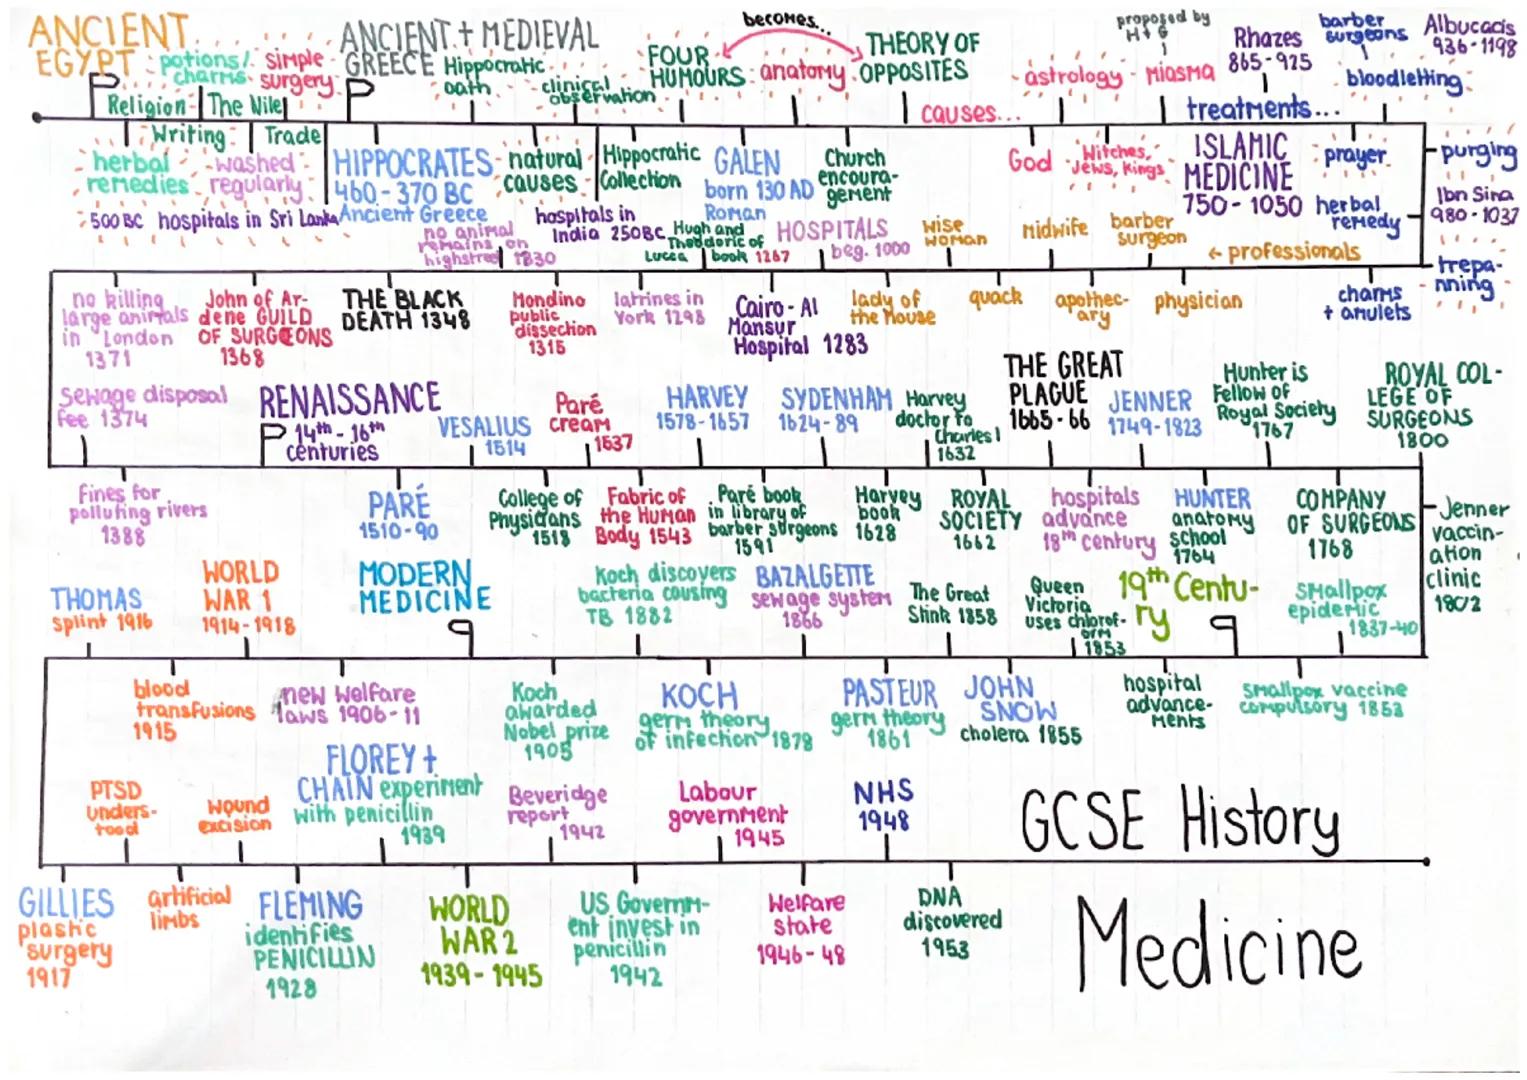 ANCIENT
EGYPT
potions/
charms
simple
surgery
Religion
The Nile
ANCIENT + MEDIEVAL
GREECE
Hippocratic
oath
clinical
observation
FOUR
HUMOURS
becomes...
anatomy
THEORY OF
OPPOSITES
causes...
astrology
proposed by
H + G
miasma
Rhazes
865-925
treatments...
barber
surgeons
bloodletting
Albucasis
936-1198
Writing
Trade
herbal
remedies
washed
regularly
500 BC hospitals in Sri Lanka
HIPPOCRATES
460-370 BC
Ancient Greece
natural
causes
Hippocratic
Collection
GALEN
born 130 AD
Roman
Church
encoura-
gement
God
Witches,
Jews, Kings
ISLAMIC
MEDICINE
750-1050
prayer
herbal
remedy
purging
Ibn Sina
980-1037
trepa-
nning
no animal
remains on
highstreet 1330
hospitals in
India 250BC
Hugh and
Theodoric of
Lucca book 1267
HOSPITALS
beg. 1000
wise
woman
midwife
barber
surgeon
← professionals
no killing
large animals
in London
1371
John of Ar-
dene GUILD
OF SURGEONS
1368
THE BLACK
DEATH 1348
Mondino
public
dissection
1315
latrines in
York 1298
Cairo - Al
Mansur
Hospital 1283
lady of
the house
quack
apothec-
ary
physician
charms
+ amulets
sewage disposal
fee 1374
RENAISSANCE
14th - 16th
centuries
VESALIUS
1514
Paré
cream
1537
HARVEY
1578-1657
SYDENHAM
1624-89
Harvey
doctor to
Charles I
1632
THE GREAT
PLAGUE
1665-66
JENNER
1749-1823
Hunter is
Fellow of
Royal Society
1767
ROYAL COL-
LEGE OF
SURGEONS
1800
Fines for
polluting rivers
1388
PARÉ
1510-90
College of
Physicians
1518
Fabric of
the Human
Body 1543
Paré book
in library of
barber surgeons
1591
Harvey
book
1628
ROYAL
SOCIETY
1662
hospitals
advance
18th century
HUNTER
anatomy
school
1764
COMPANY
OF SURGEONS
1768
Jenner
vaccin-
ation
clinic
1802
THOMAS
splint 1916
WORLD
WAR 1
1914-1918
MODERN
MEDICINE
Koch discovers
bacteria causing
TB 1882
BAZALGETTE
sewage system
1866
The Great
Stink 1858
Queen
Victoria
uses chlorof-
orm
1853
19th Centu-
ry
smallpox
epidemic
1837-40
blood
transfusions
1915
new welfare
laws 1906-11
Koch
awarded
Nobel prize
1905
KOCH
germ theory
of infection 1878
PASTEUR
germ theory
1861
JOHN
SNOW
cholera 1855
hospital
advance-
ments
smallpox vaccine
compulsory 1853
PTSD
unders-
tood
wound
excision
FLOREY +
CHAIN experiment
with penicillin
1939
Beveridge
report
1942
Labour
government
1945
NHS
1948
GCSE History
GILLIES
plastic
surgery
1917
artificial
limbs
FLEMING
identifies
PENICILLIN
1928
WORLD
WAR 2
1939-1945
US Governm-
ent invest in
penicillin
1942
Welfare
state
1946-48
DNA
discovered
1953
Medicine